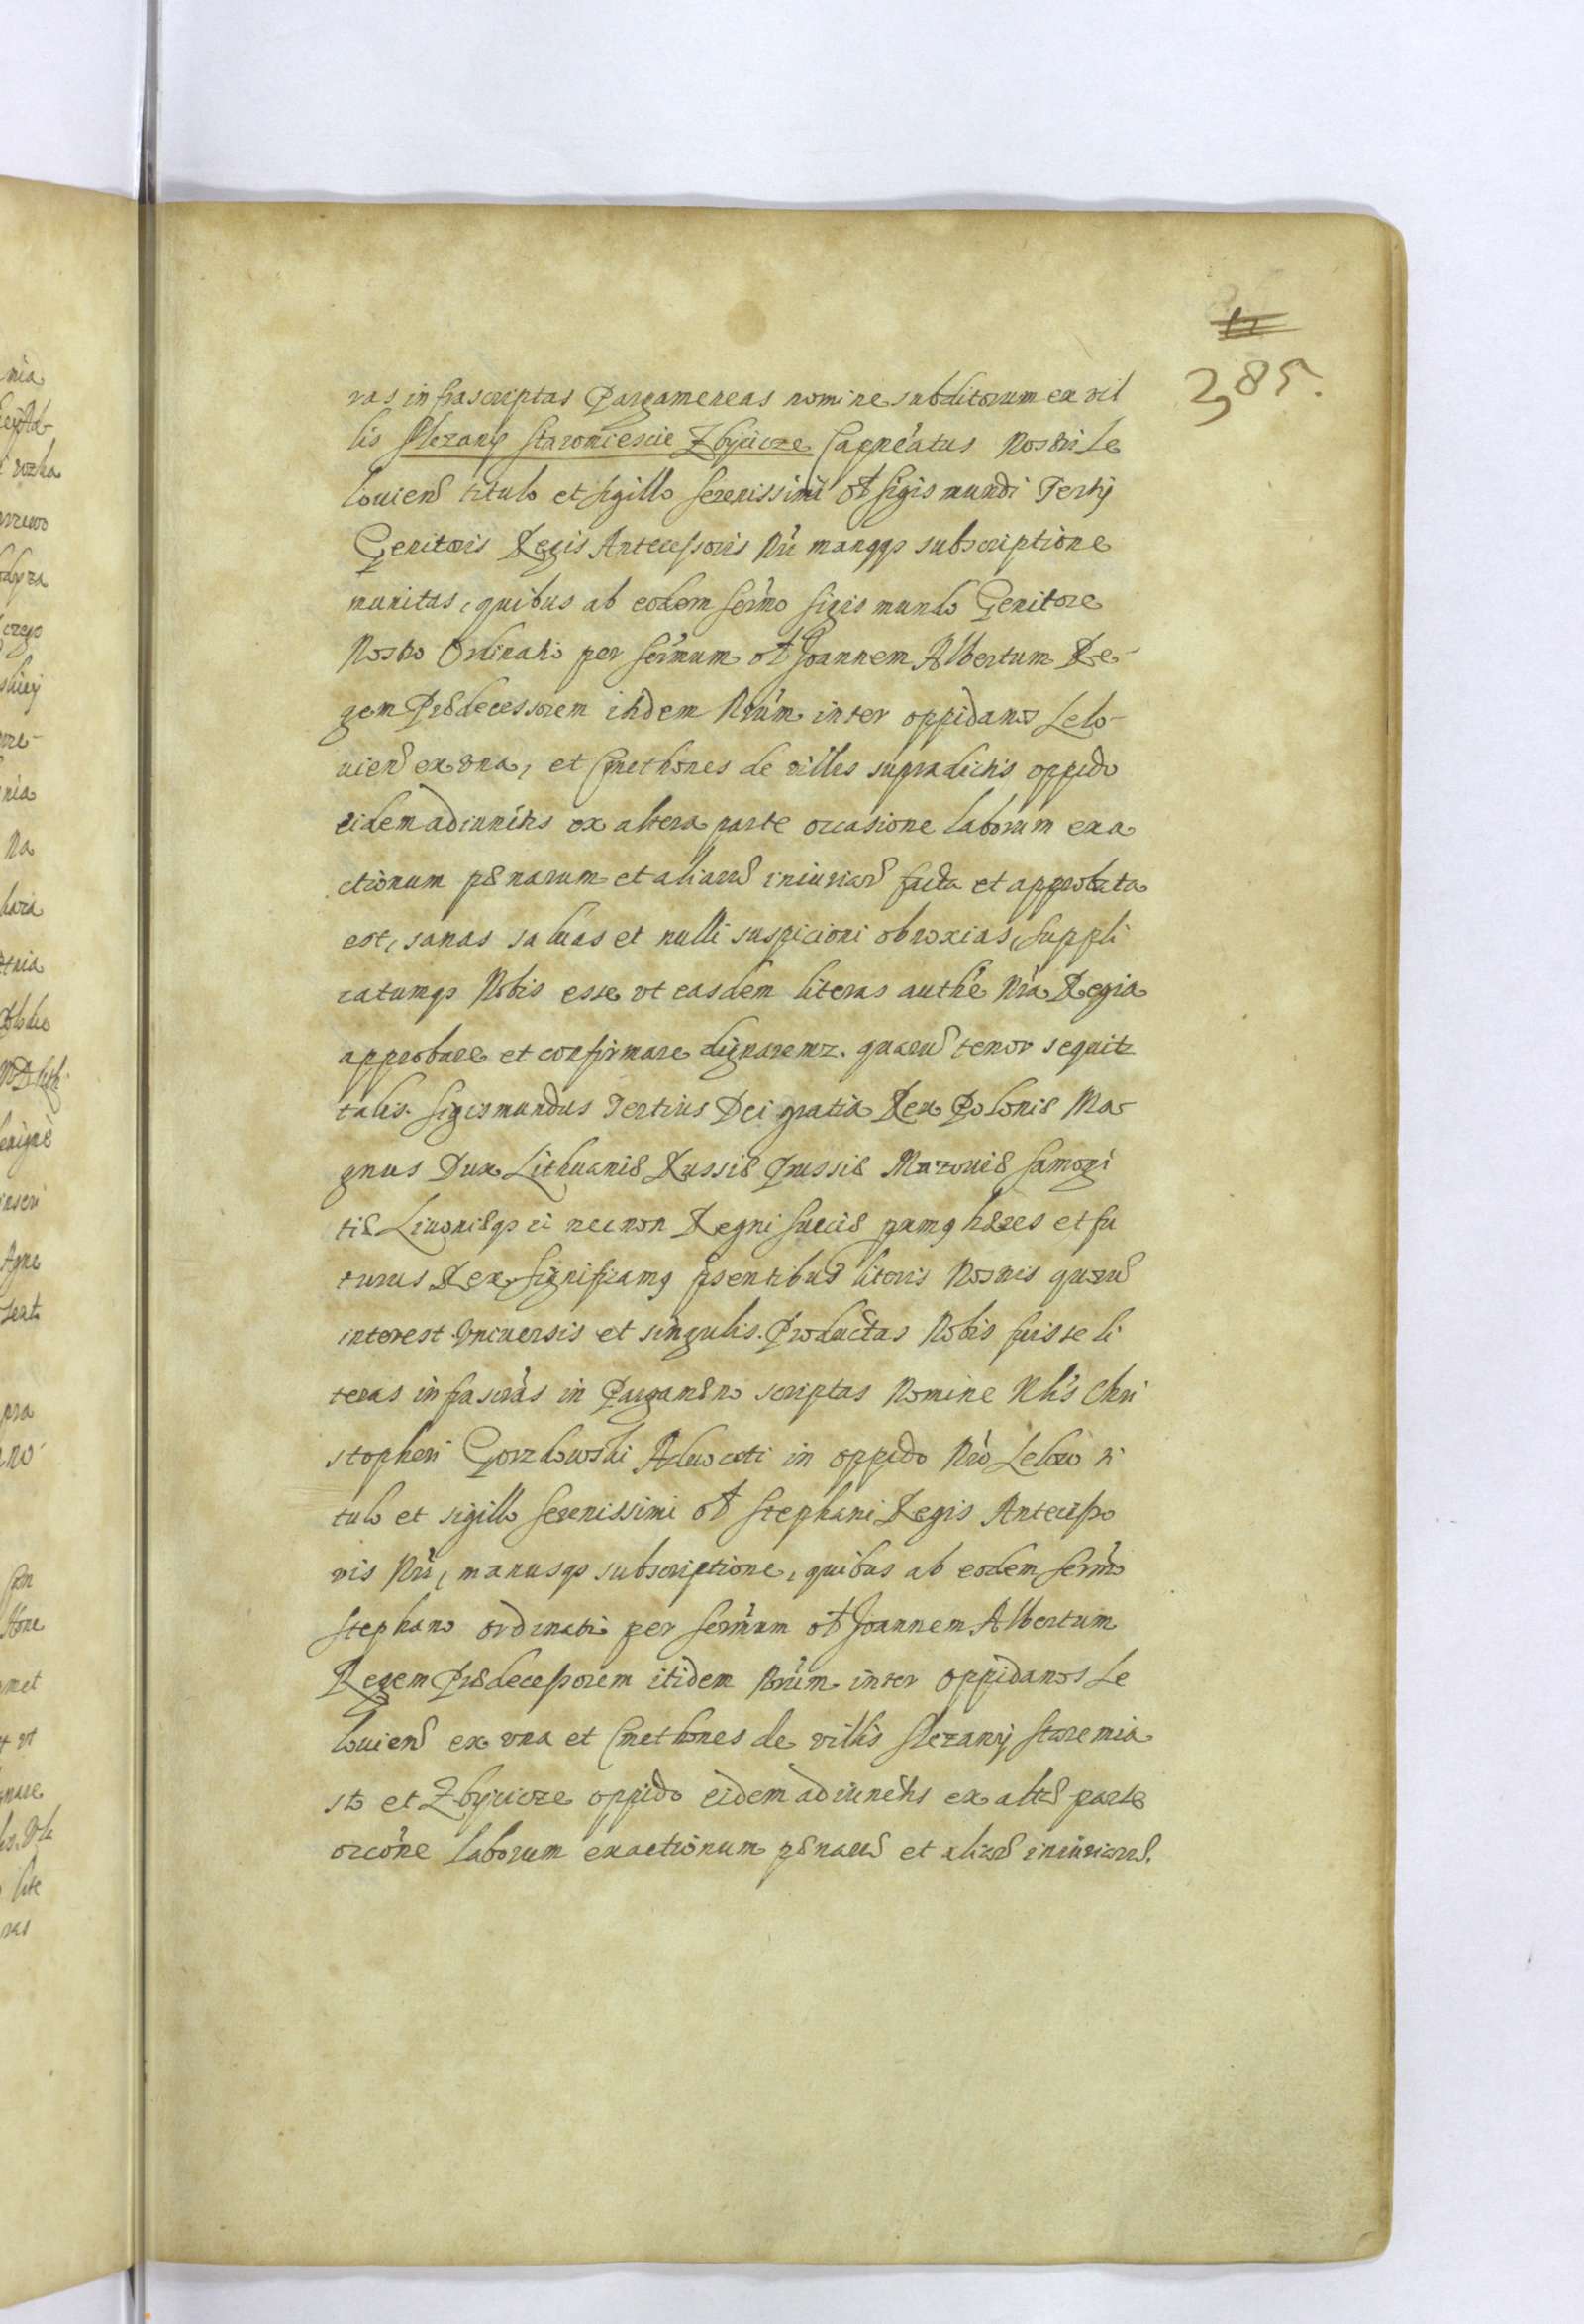 385.
ras infrascriptas Pargameneas nomine subditorum ex vil
lis Slezany Staromiescie Zbyczice Capnéatus Nostri Le
loviens titulo et sigillo Serenissimi ol Sigismundi Tertij
Genitoris Regis Antecessoris Nri manqq subscriptione
munitas, quibus ab eodem Sermo Sigismundo Genitore
Nostro Ordinatio per Sermum ol Joannem Albertum Re-
gem Prædecessorem itidem Nrum inter oppidanos Lelo-
uiens ex vna, et Cmethones de villis supradictis oppido
eidem adiunctis ex altera parte occasione laborum exa
ctionum pænarum et aliarũ iniuriarũ facta et approbata
est, sanas saluas et nulli suspicioni obnoxias, Suppli
catumqz Nobis esse vt easdem literas authe Nra Regia
approbare et confirmare dignaremz. quarũ tenor sequitz
talis. Sigismundus Tertius Dei gratia Rex Poloniæ Ma-
gnus Dux Lithuaniæ Russiæ Prussiæ Mazoviæ Samogi
tiæ Livoniæqz et necnon Regni Sueciæ pximq hæres et fu
turus Rex, Significamq psentibus literis Nostris quorũ
interest Vniuersis et singulis. Productas Nobis fuisse li
teras infrascras in Pargamæno scriptas Nomine Nlis Chri
stopheri Gorzkowski Aduocati in oppido Nro Lelow ti
tulo et sigillo Serenissimi ol Stephani Regis Antecesso
ris Nri, manusqz subscriptione, quibus ab eodem Sermo
Stephano ordinatio per Sermum ol Joannem Albertum
Regem Prædecessorem itidem Nrum inter oppidanos Le
louiens ex vna et Cmethones de villis Slezany Staremia
sto et Zbyczice oppido eidem adiunctis ex altæ parte
occone laborum exactionum pænarũ et aliarũ iniuriarũ.